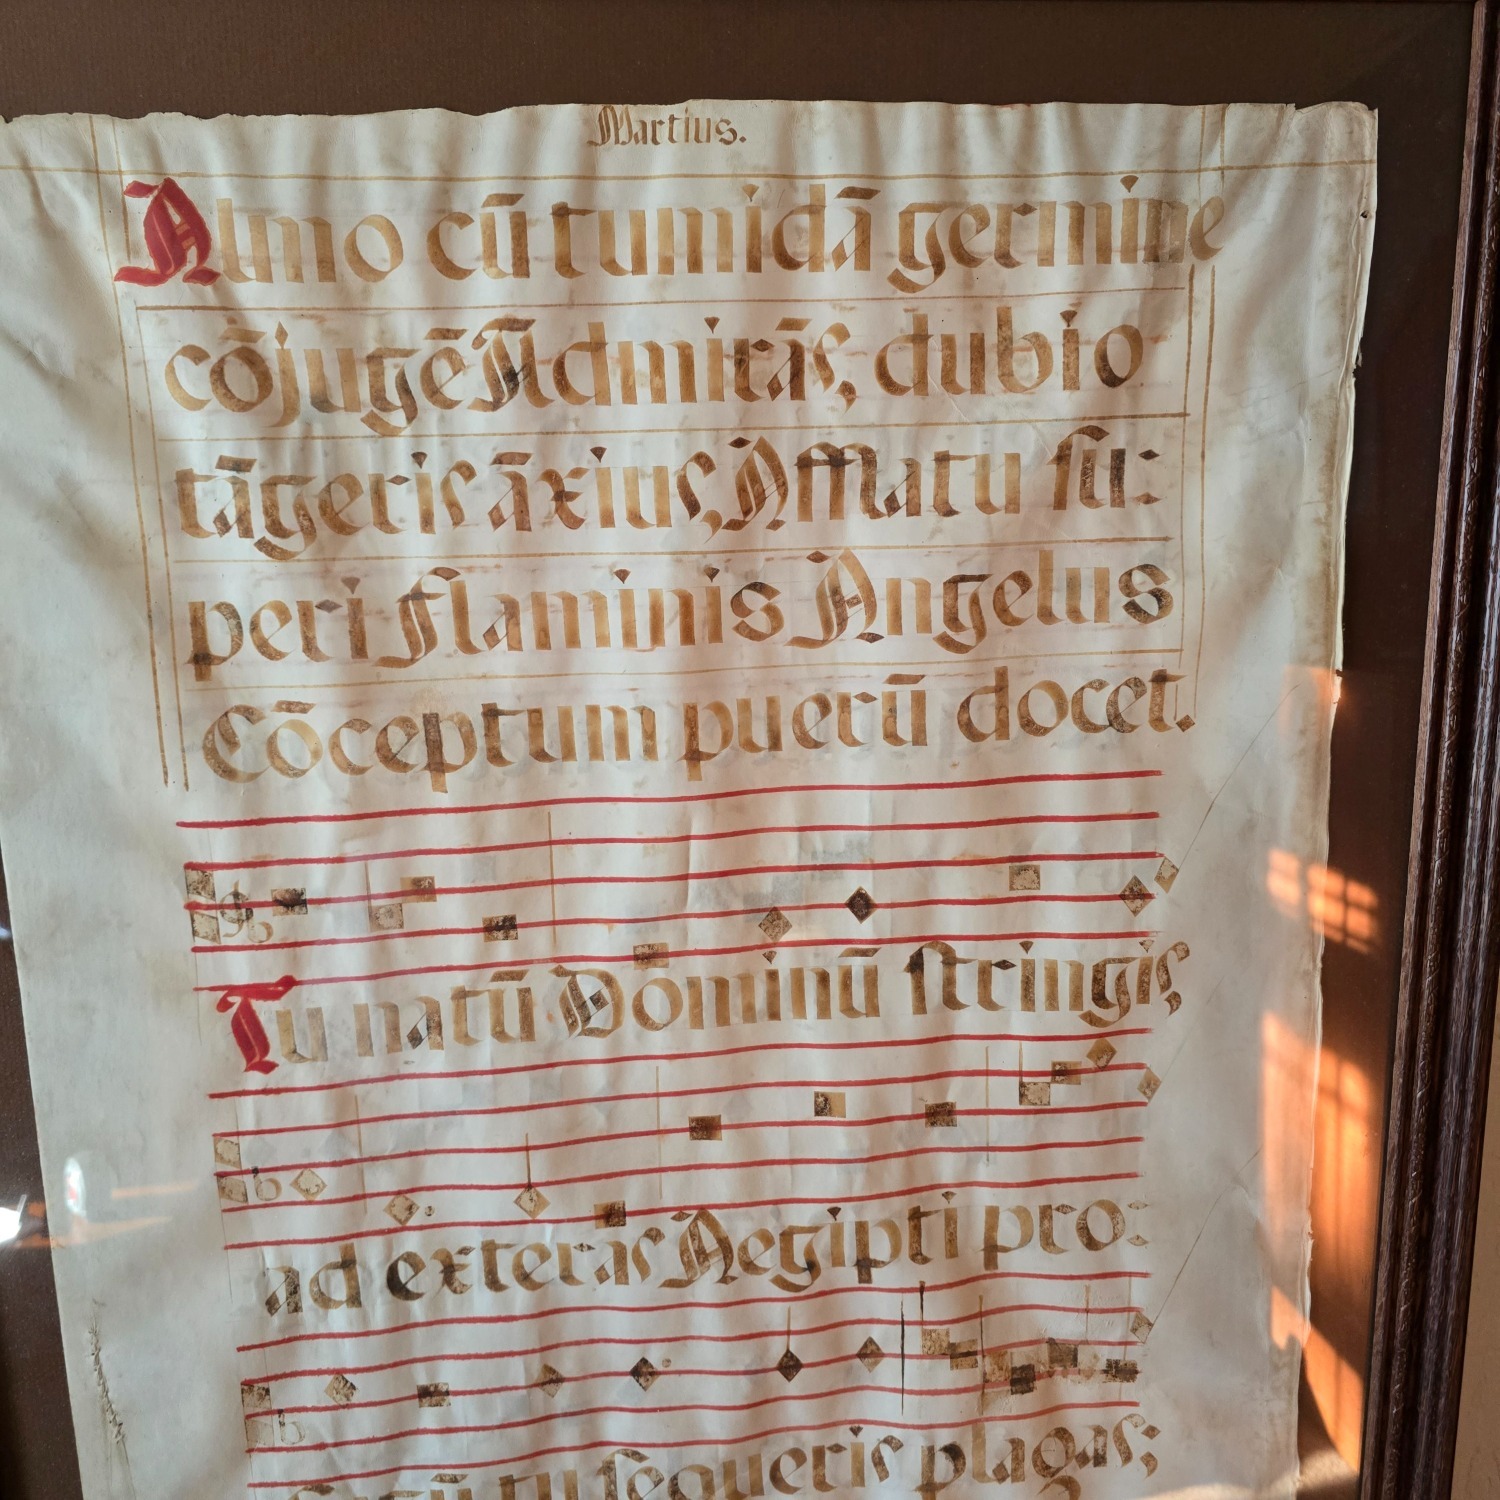 Martius.
Almo cũ tumidā germine
cōjugē Admirās, dubio
tāgeris āxius, Afflatu su:
peri flaminis Angelus
Cōceptum puerū docet.
Tu natū Dōminū stringis,
ad exteras Aegipti pro:
tu sequeris plagas;